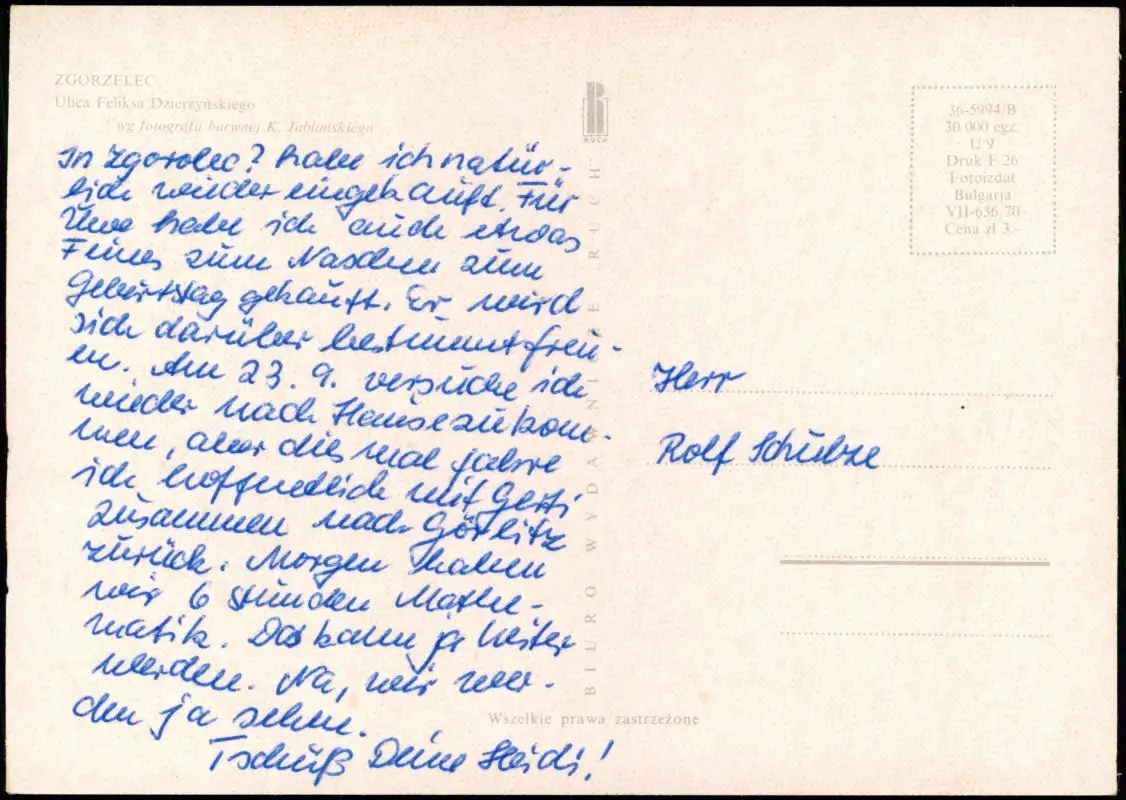 ZGORZELEC
Ulica Feliksa Dzierżyńskiego
wg fotografii barwnej K. Jabłońskiego
In Zgorolec? habe ich natür-
lich wieder eingekauft. Für
Uwe habe ich auch etwas
Feines zum Naschen zum
Geburtstag gekauft. Er wird
sich darüber bestimmt freu-
en. Am 23. 9. versuche ich
wieder nach Hause zu kom-
men, aber dies mal fahre
ich hoffendlich mit Gerti
zusammen nach Görlitz
zurück. Morgen haben
wir 6 Stunden Mathe-
matik. Das kann ja heiter
werden. Na, wir wer-
den ja sehen.
Tschüß Deine Heidi!
RUCH
BIURO WYDAWNICZE "RUCH"
Wszelkie prawa zastrzeżone
36-5994/B
30.000 egz.
U 9
Druk F 26
Fotoizdat
Bulgaria
VII-636/70
Cena zł 3.-
Herr
Rolf Schubze